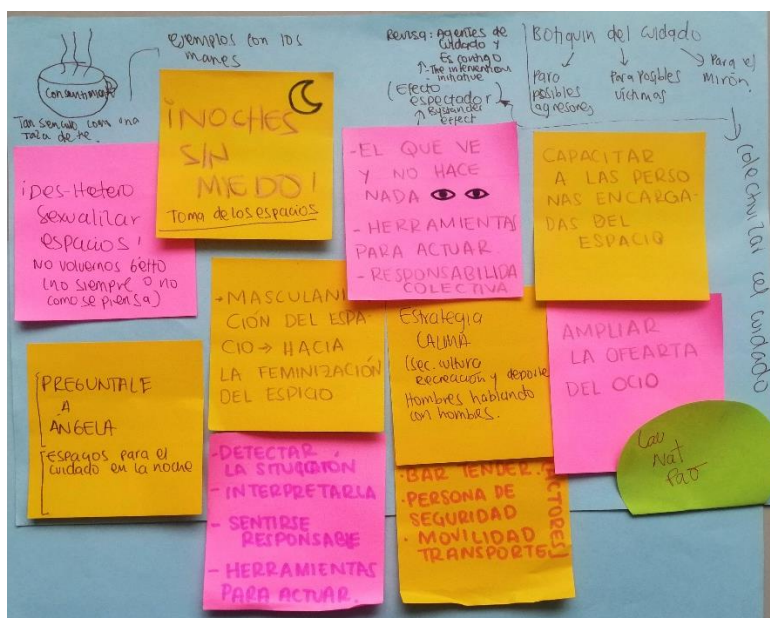 Consentimiento
Tan sencillo como una
taza de te.
ejemplos con los
manes
Revisa: Agentes de
cuidado y
Es contigo
↑-The intervention
initiative
(Efecto
espectador)
↑ Bystander
effect
Botiquin del cuidado
Para
posibles
agresores
Para Posibles
víctimas
Para el
mirón.
colectivizar el cuidado
¡NOCHES
SIN
MIEDO!
Toma de los espacios
¡Des-Hetero
Sexualizar
espacios!
No volvernos
(no siempre o no
como se piensa)
-EL QUE VE
Y NO HACE
NADA
- HERRAMIENTAS
PARA ACTUAR
- RESPONSABILIDA
COLECTIVA
CAPACITAR
A LAS PERSO
NAS ENCARGA-
DAS DEL
ESPACIO
→MASCULANI
CIÓN DEL ESPA-
CIO→ HACIA
LA FEMINIZACIÓN
DEL ESPICIO
Estrategia
CALMA
(Sec. cultura
recreación y deporte
Hombres hablando
con hombres.
AMPLIAR
LA OFEARTA
DEL OCIO
PREGUNTALE
A
ANGELA
Espacios para el
cuidado en la noche
-DETECTAR
LA SITUACIÓN
- INTERPRETARLA
- SENTIRSE
RESPONSABLE
- HERRAMIENTAS
PARA ACTUAR.
·BAR TENDER.
·PERSONA DE
SEGURIDAD
· MOVILIDAD
TRANSPORTE
ACTORES
Lau
Nat
Pao